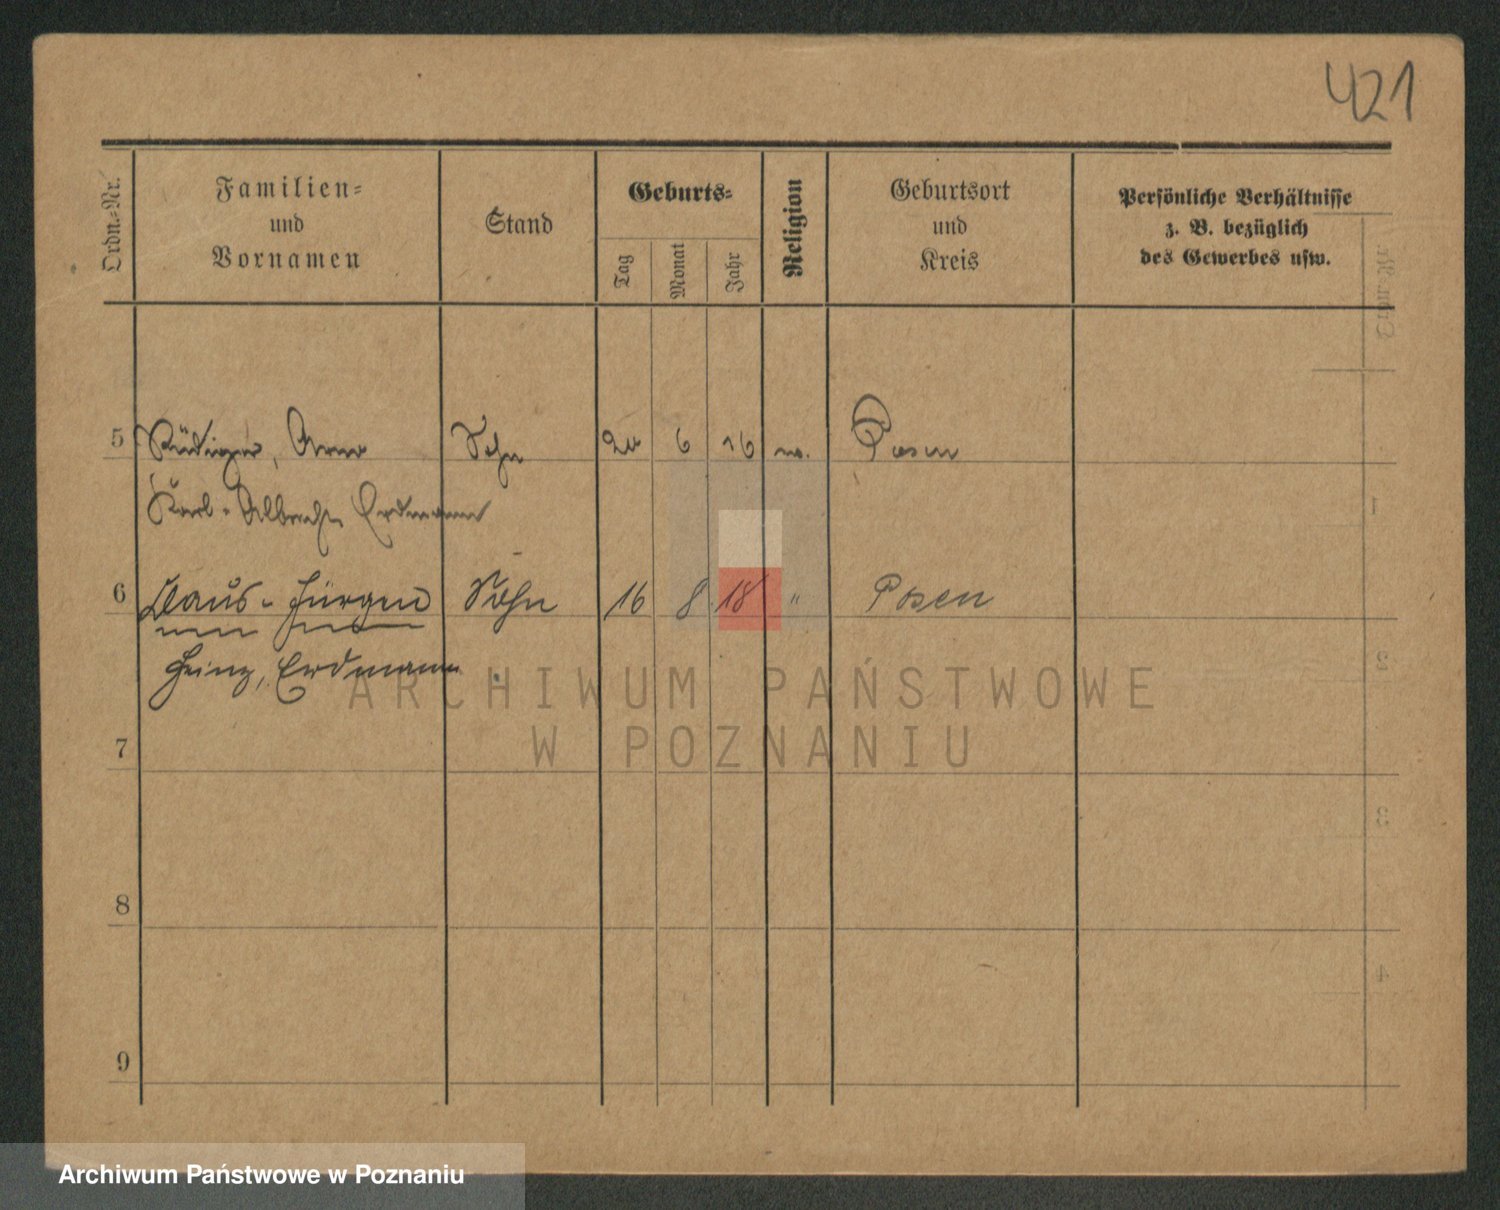 421
Ordn.-Nr.
Familien-
und
Vornamen
Stand
Geburts-
Tag
Monat
Jahr
Religion
Geburtsort
und
Kreis
Persönliche Verhältnisse
z. B. bezüglich
des Gewerbes usw.
5 Rüdiger, Arno Sohn 20 6 16 Posen
Karl-Albrecht Erdmann
6 Claus-Jürgen Sohn 16 8 18 " Posen
Heinz, Erdmann
7
8
9
ARCHIWUM PAŃSTWOWE
W POZNANIU
Archiwum Państwowe w Poznaniu